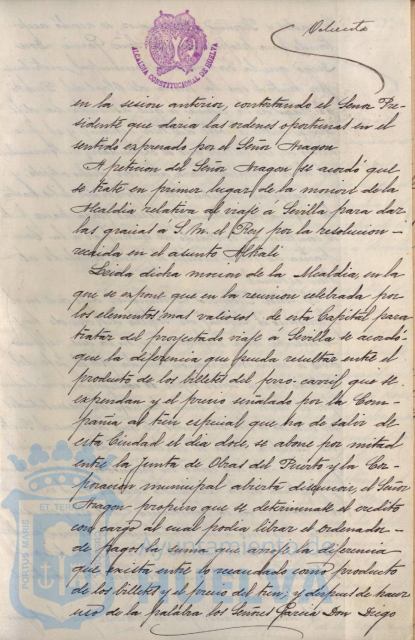 ALCALDIA CONSTITUCIONAL DE HUELVA
en la sesion anterior, contestando el Señor Pre-
sidente que daria las ordenes oportunas en el
sentido expresado por el Señor Aragon
A peticion del Señor Aragon se acordó que
se trate en primer lugar de la mocion de la
Alcaldia relativa al viaje á Sevilla para dar
las gracias á S. M. el Rey por la resolucion -
recaida en el asunto Alkali
Leida dicha mocion de la Alcaldia, en la
que se expone que en la reunion celebrada por
los elementos mas valiosos de esta Capital para
tratar del proyectado viaje á Sevilla se acordó
que la diferencia que pueda resultar entre el
producto de los billetes del ferro-carril que se
expendan y el precio señalado por la Com-
pañia al tren especial que ha de salir de
esta Ciudad el dia doce, se abone por mitad
entre la Junta de Obras del Puerto y la Cor-
poracion municipal abierta discusion, el Señor
Aragon propuso que se determinase el credito
con cargo al cual podia librar el ordenador -
de pagos la suma que arroje la diferencia
que exista entre lo recaudado como producto
de los billetes y el precio del tren; y despues de hacer
uso de la palabra los Señores Garcia Don Diego
PORTUS MARIS ET TERRAE
Ayuntamiento de
HUELVA